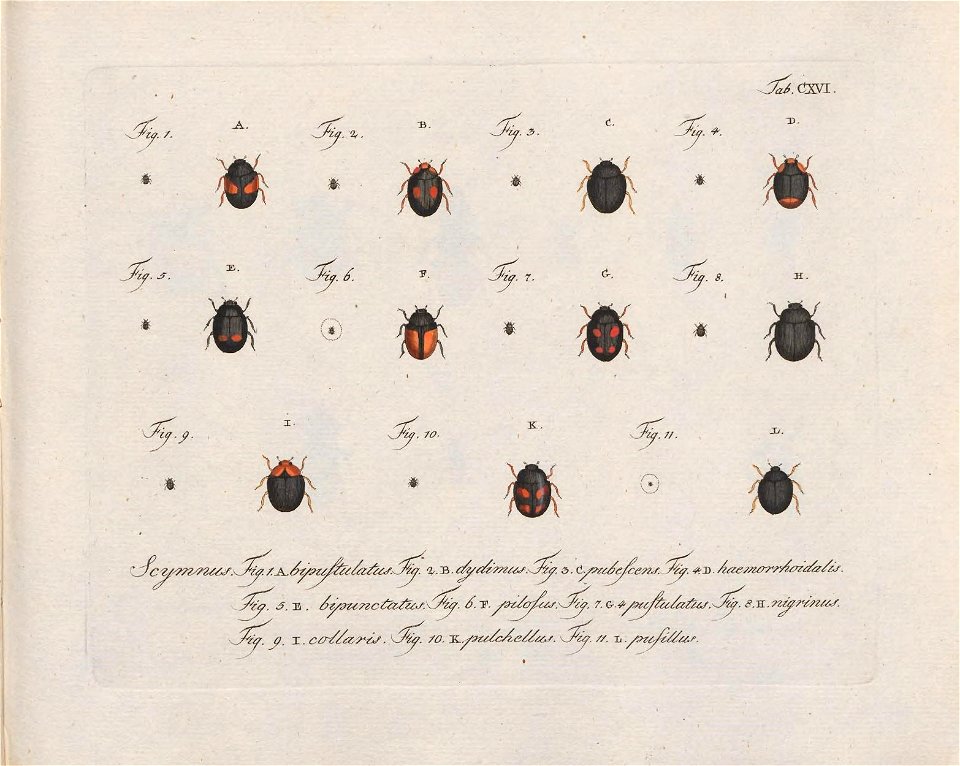 Tab. CXVI.
Fig. 1. A. Fig. 2. B. Fig. 3. C. Fig. 4. D.
Fig. 5. E. Fig. 6. F. Fig. 7. G. Fig. 8. H.
Fig. 9. I. Fig. 10. K. Fig. 11. L.
Scymnus. Fig. 1. A. bipuſtulatus. Fig. 2. B. dydimus. Fig. 3. C. pubeſcens. Fig. 4. D. haemorrhoidalis.
Fig. 5. E. bipunctatus. Fig. 6. F. piloſus. Fig. 7. G. 4 puſtulatus. Fig. 8. H. nigrinus.
Fig. 9. I. collaris. Fig. 10. K. pulchellus. Fig. 11. L. puſillus.